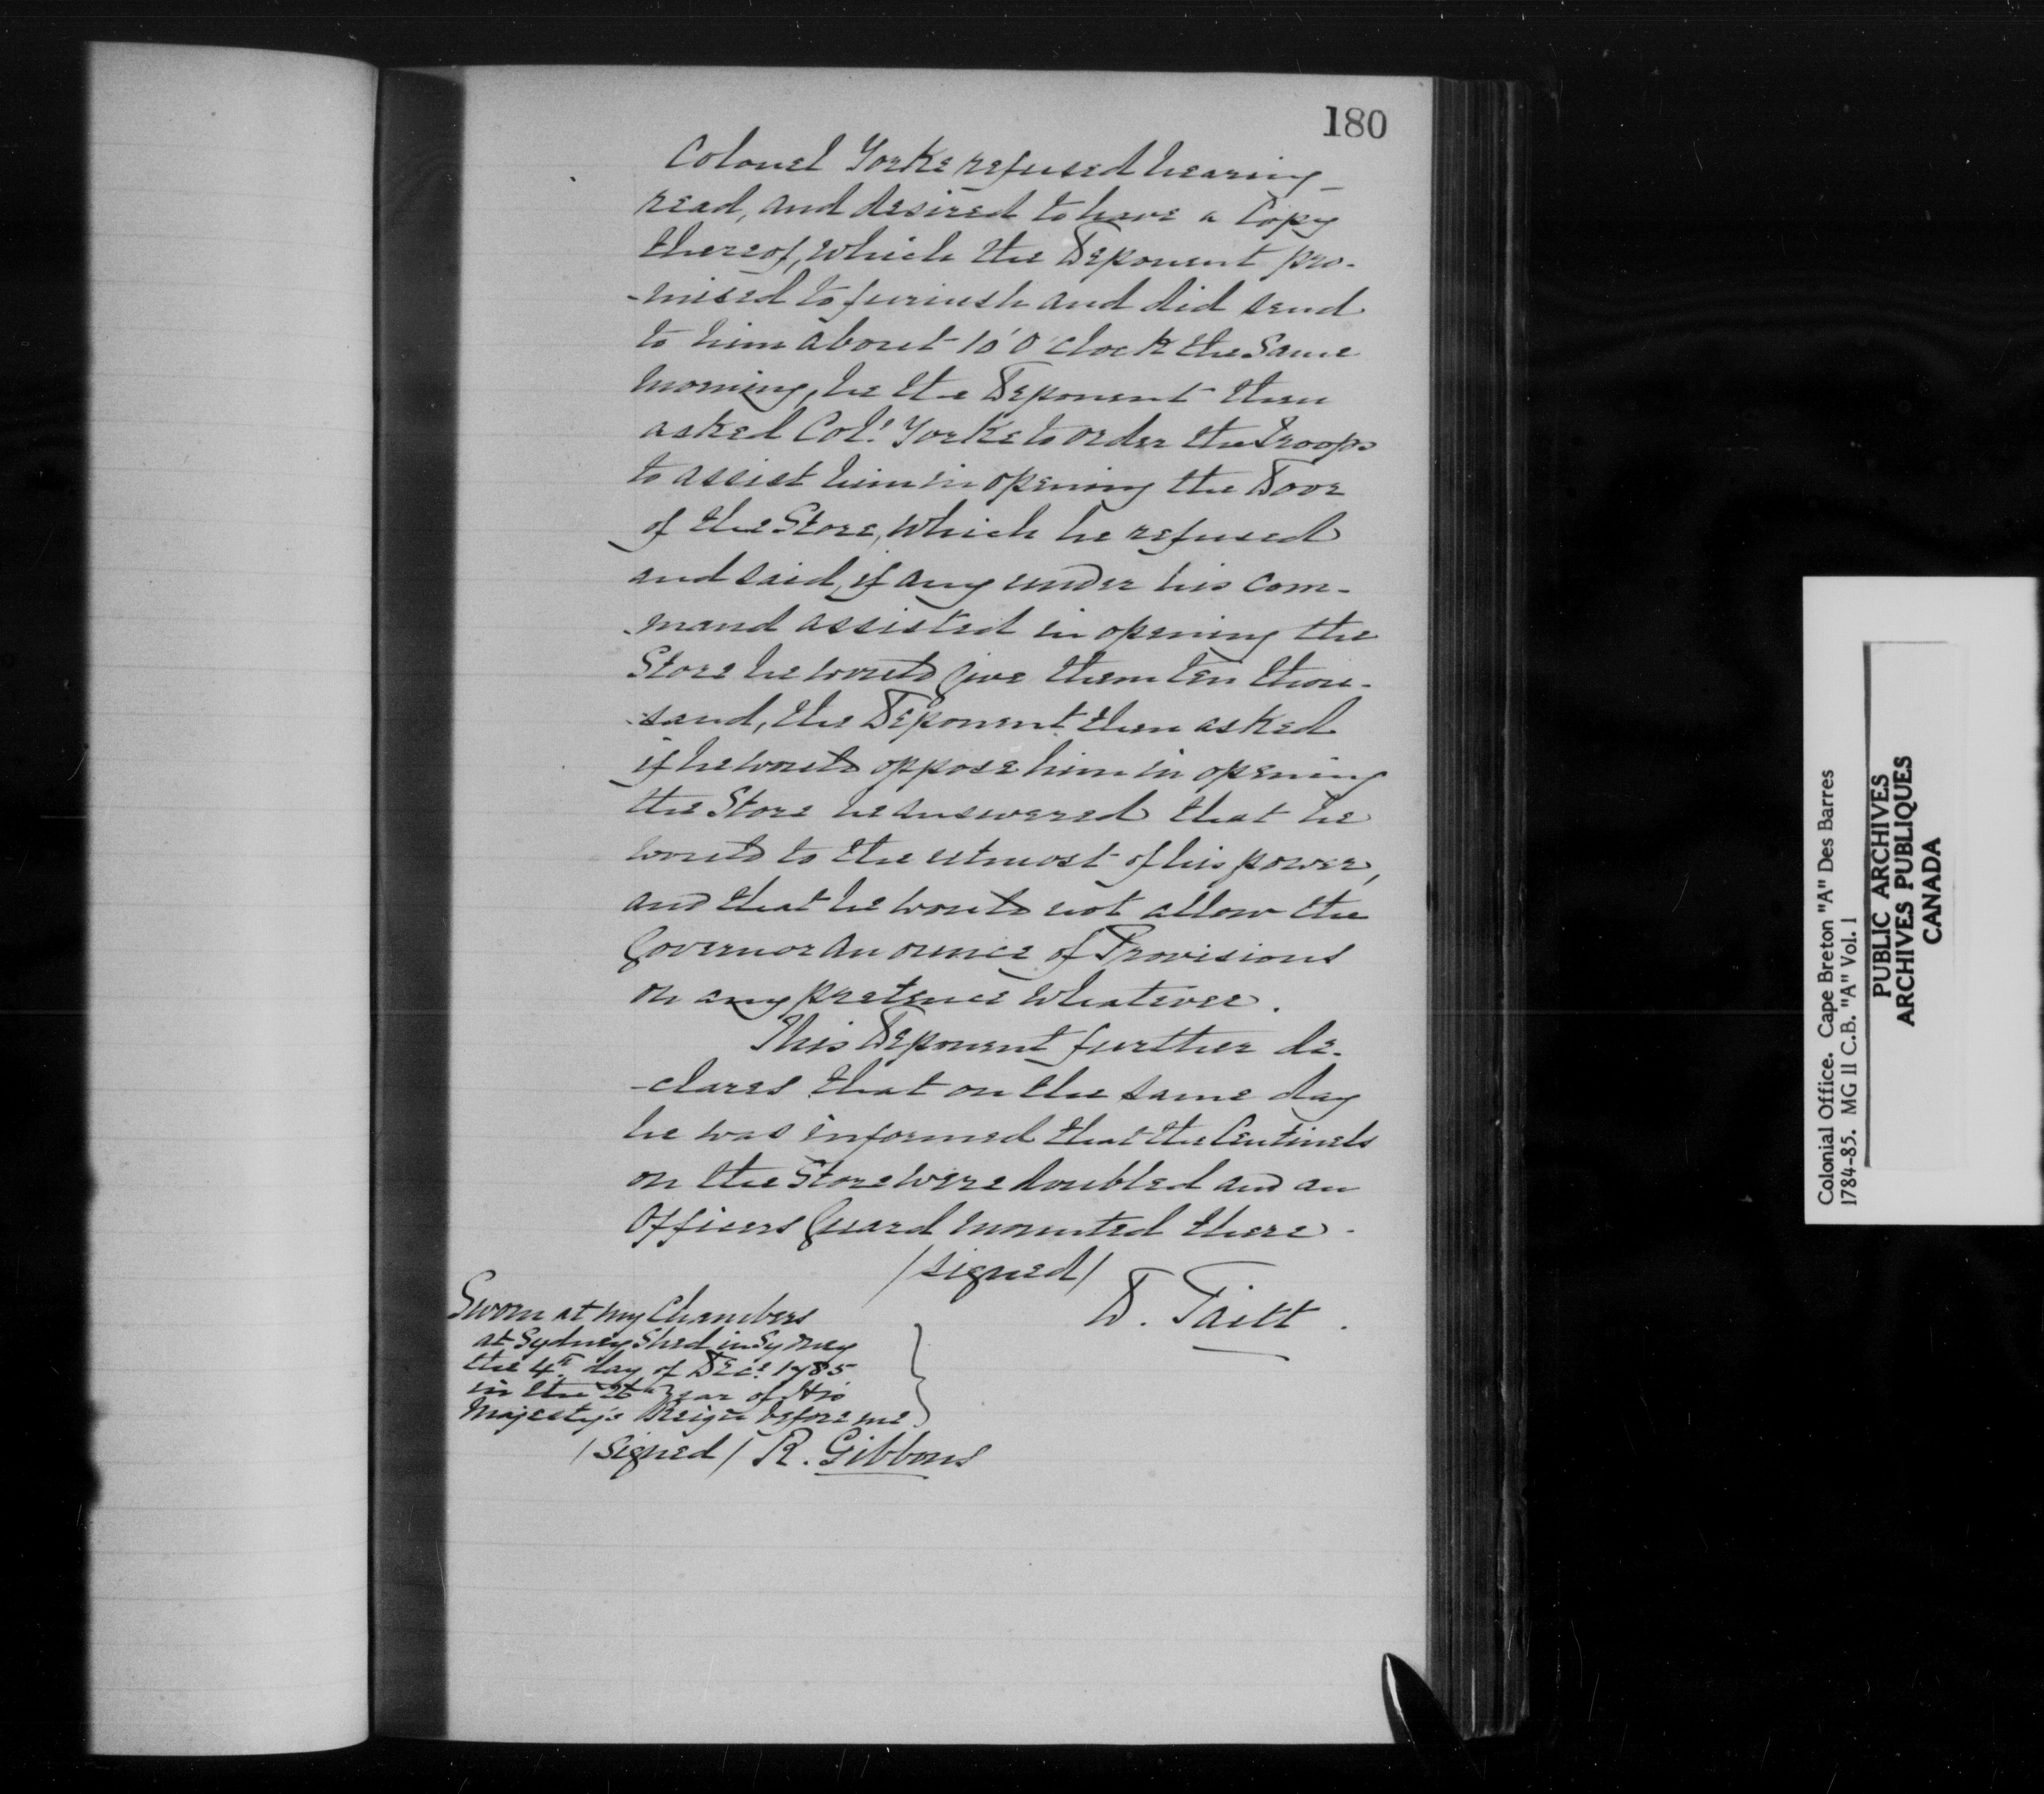 180
Colonel Yorke refused hearing
read, and desired to have a Copy
thereof, which the Deponent pro-
-mised to furinsh and did send
to him about 10 'O'clock the Same
morning, he the Deponent then
asked Col! Yorke to order the Troops
to assist him in opening the Door
of the Store, which he refused
and said, if any under his com-
-mand assisted in opening the
Store he would give them ten thou-
-sand, the Deponent then asked
if he would oppose him in opening
the Store he answered that he
would to the utmost of his power,
and that he would not allow the
Governor an ounce of Provisions
on any pretence whatever.
This Deponent further de-
-clares that on the same day
he was informed that the Centinels
on the Store were doubled and an
Officers Guard mounted there -
/signed/
D. Taitt.
Sworn at my Chambers
at Sydney Shed in Sydney
the 4th day of Decr 1785
in the 26th Year of His
Majesty's Reign before me
/signed/ R. Gibbons
Colonial Office. Cape Breton "A" Des Barres
1784-85. MG 11 C.B. "A" Vol. 1
PUBLIC ARCHIVES
ARCHIVES PUBLIQUES
CANADA